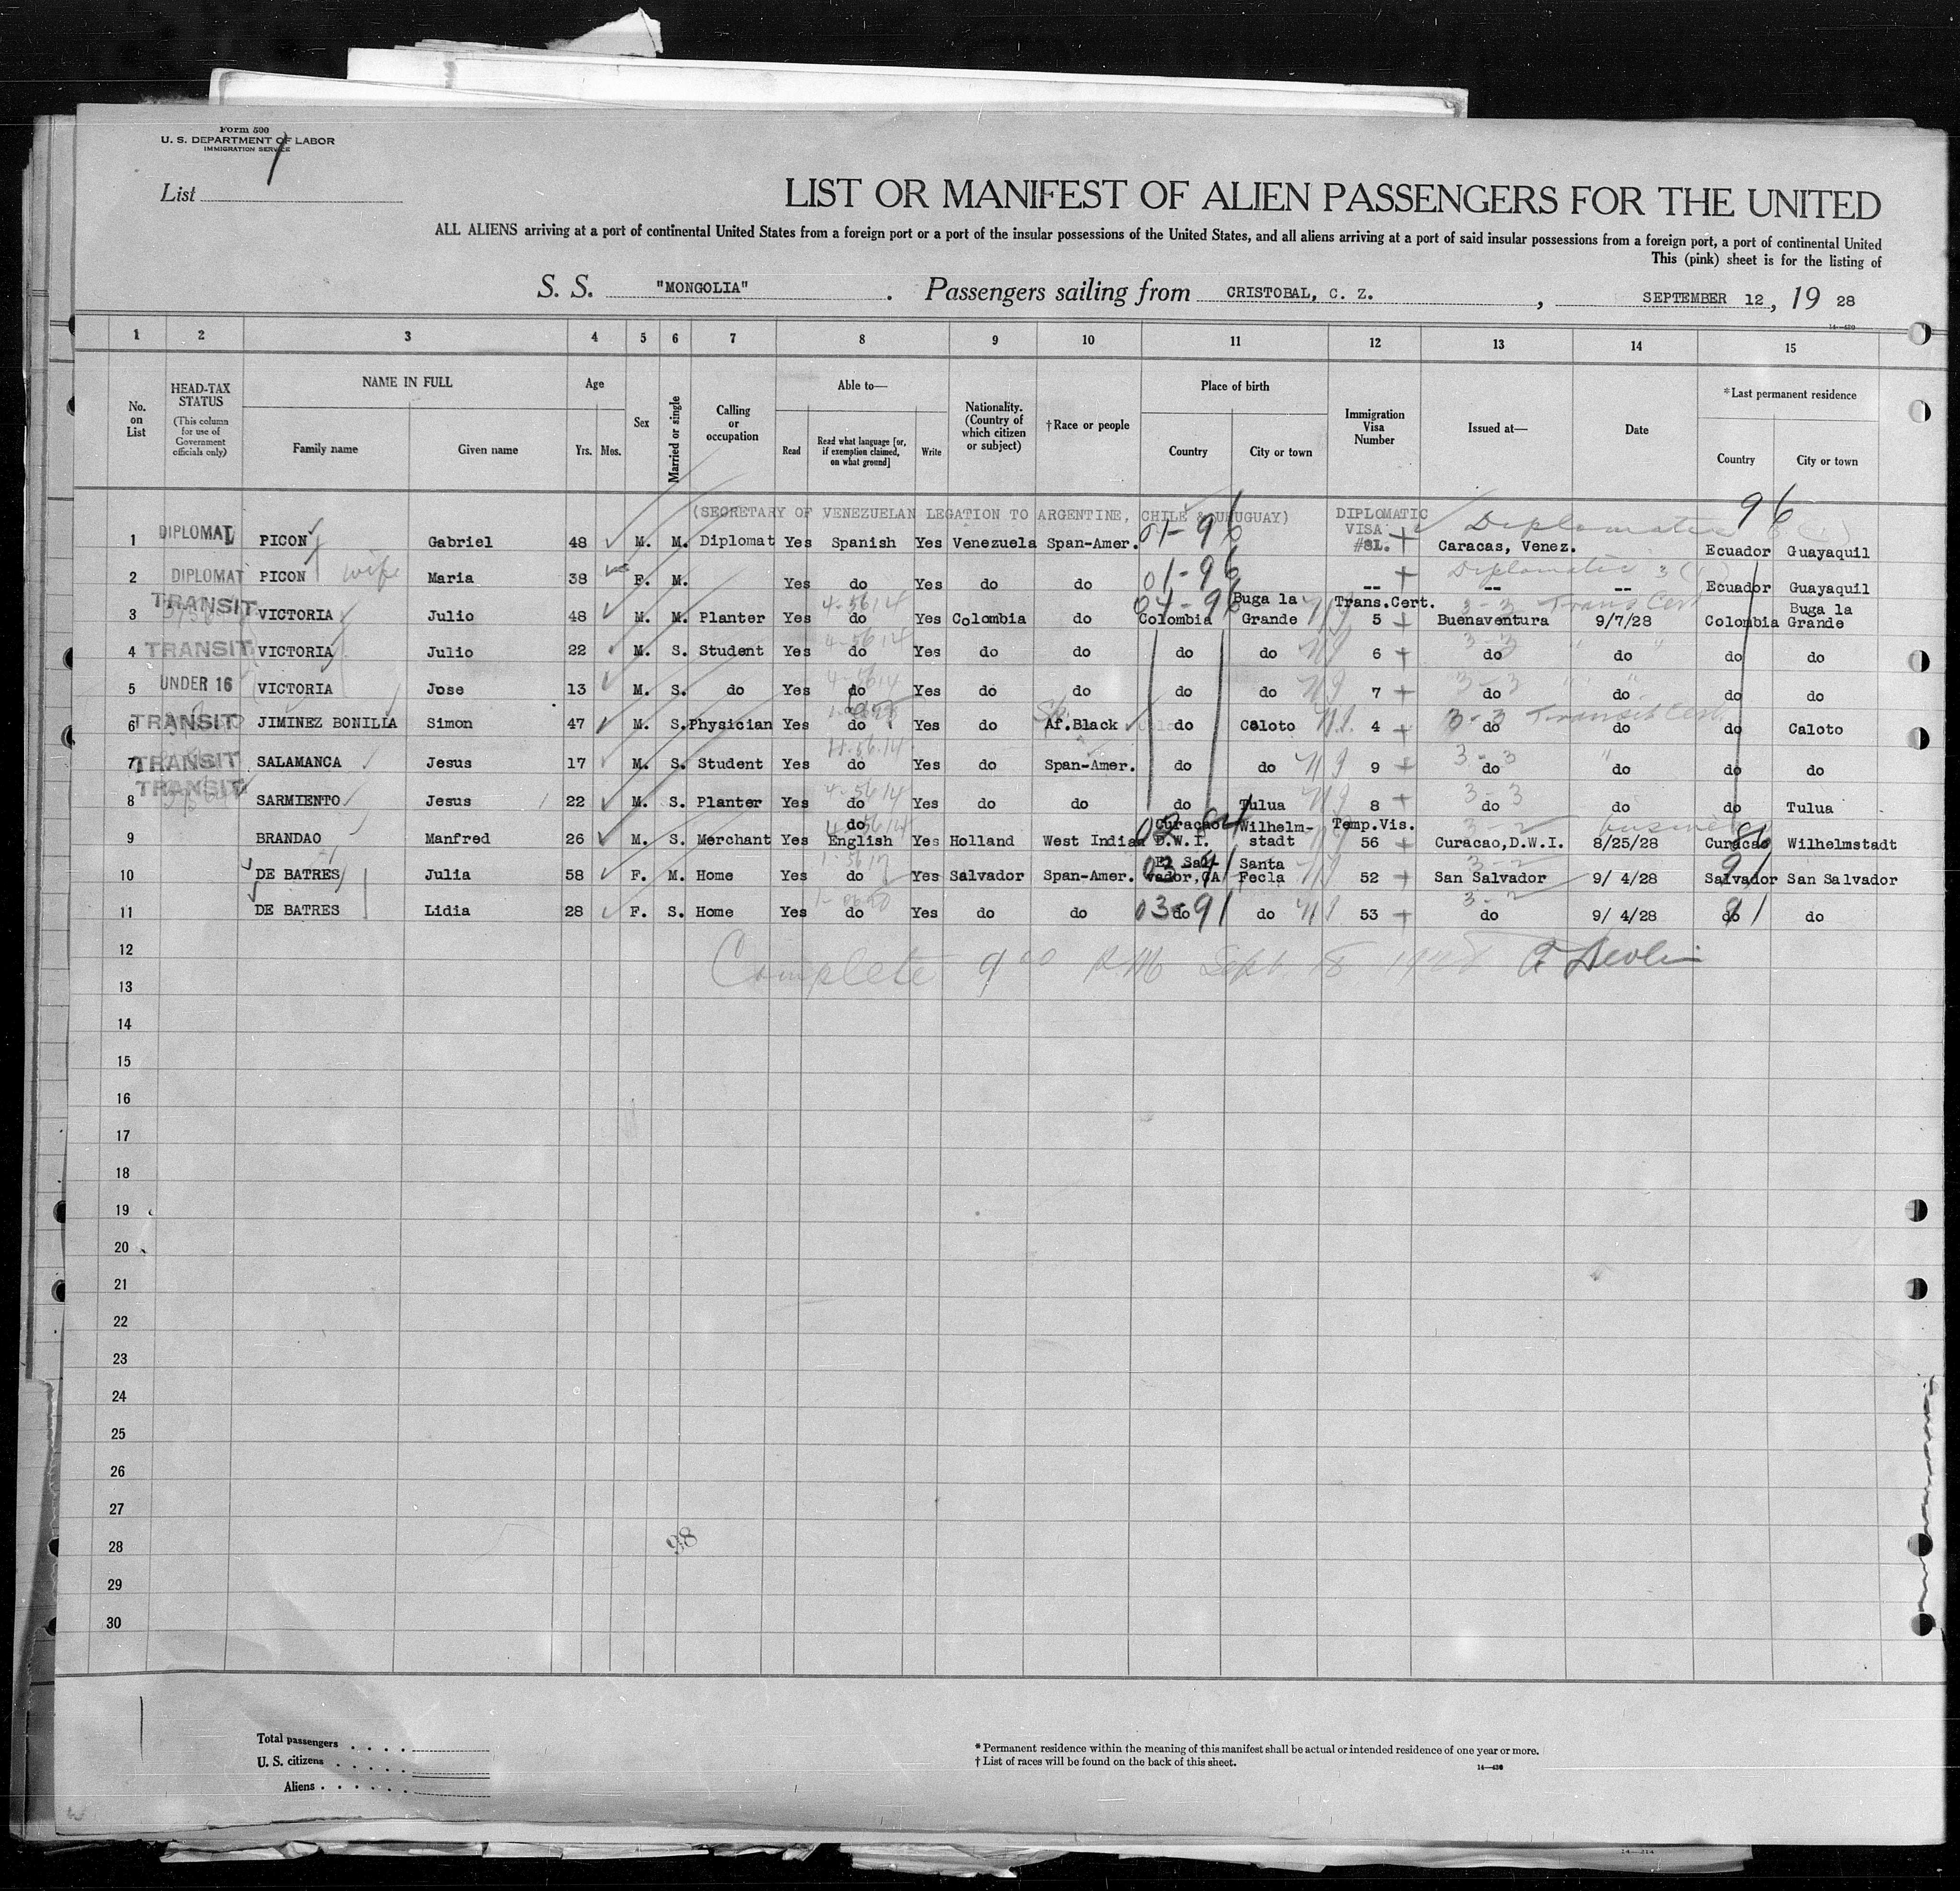 Form 500
U. S. DEPARTMENT OF LABOR
IMMIGRATION SERVICE
List 1
LIST OR MANIFEST OF ALIEN PASSENGERS FOR THE UNITED
ALL ALIENS arriving at a port of continental United States from a foreign port or a port of the insular possessions of the United States, and all aliens arriving at a port of said insular possessions from a foreign port, a port of continental United
This (pink) sheet is for the listing of
S. S. "MONGOLIA". Passengers sailing from CRISTOBAL, C. Z., SEPTEMBER 12, 19 28
14—430
1 2 3 4 5 6 7 8 9 10 11 12 13 14 15
No. on List
HEAD-TAX STATUS (This column for use of Government officials only)
NAME IN FULL Family name Given name
Age Yrs. Mos.
Sex
Married or single
Calling or occupation
Able to— Read Read what language [or, if exemption claimed, on what ground] Write
Nationality. (Country of which citizen or subject)
†Race or people
Place of birth Country City or town
Immigration Visa Number
Issued at—
Date
*Last permanent residence Country City or town
(SECRETARY OF VENEZUELAN LEGATION TO ARGENTINE, CHILE & URUGUAY) DIPLOMATIC VISA 96
1 DIPLOMAT PICON Gabriel 48 M. M. Diplomat Yes Spanish Yes Venezuela Span-Amer. 01-96 #8L. Caracas, Venez. Diplomatic Ecuador Guayaquil
2 DIPLOMAT PICON wife Maria 38 F. M. Yes do Yes do do 01-96 -- -- Diplomatic 3 (1) -- Ecuador Guayaquil
3 TRANSIT VICTORIA Julio 48 M. M. Planter Yes 4-5614 do Yes Colombia do 04-96 Colombia Buga la Grande Trans.Cert. 5 3-3 Trans Cert Buenaventura 9/7/28 Colombia Buga la Grande
4 TRANSIT VICTORIA Julio 22 M. S. Student Yes 4-5614 do Yes do do do do 6 3-3 do do do do
5 UNDER 16 VICTORIA Jose 13 M. S. do Yes 4-5614 do Yes do do do do 7 3-3 do do do do
6 TRANSIT JIMINEZ BONILLA Simon 47 M. S. Physician Yes do Yes do Af.Black do Caloto 4 3-3 Transit Cert. do do do Caloto
7 TRANSIT SALAMANCA Jesus 17 M. S. Student Yes do Yes do Span-Amer. do do 9 3-3 do do do do
8 TRANSIT SARMIENTO Jesus 22 M. S. Planter Yes 4-5614 do Yes do do do Tulua 8 3-3 do do do Tulua
9 BRANDAO Manfred 26 M. S. Merchant Yes do English Yes Holland West Indian Curacao D.W.I. Wilhelm-stadt Temp.Vis. 56 3-2 Curacao,D.W.I. business 8/25/28 Curacao Wilhelmstadt
10 DE BATRES Julia 58 F. M. Home Yes do Yes Salvador Span-Amer. 03-91 El Sal-vador,CA Santa Fecla 52 3-2 San Salvador 9/ 4/28 Salvador San Salvador
11 DE BATRES Lidia 28 F. S. Home Yes do Yes do do 03-91 do do 53 3-2 do 9/ 4/28 do 91 do
12
Complete 9 00 Sept. 18 1928
13
14
15
16
17
18
19
20
21
22
23
24
25
26
27
28
98
29
30
Total passengers
U. S. citizens
Aliens
* Permanent residence within the meaning of this manifest shall be actual or intended residence of one year or more.
† List of races will be found on the back of this sheet.
14—430
14—214